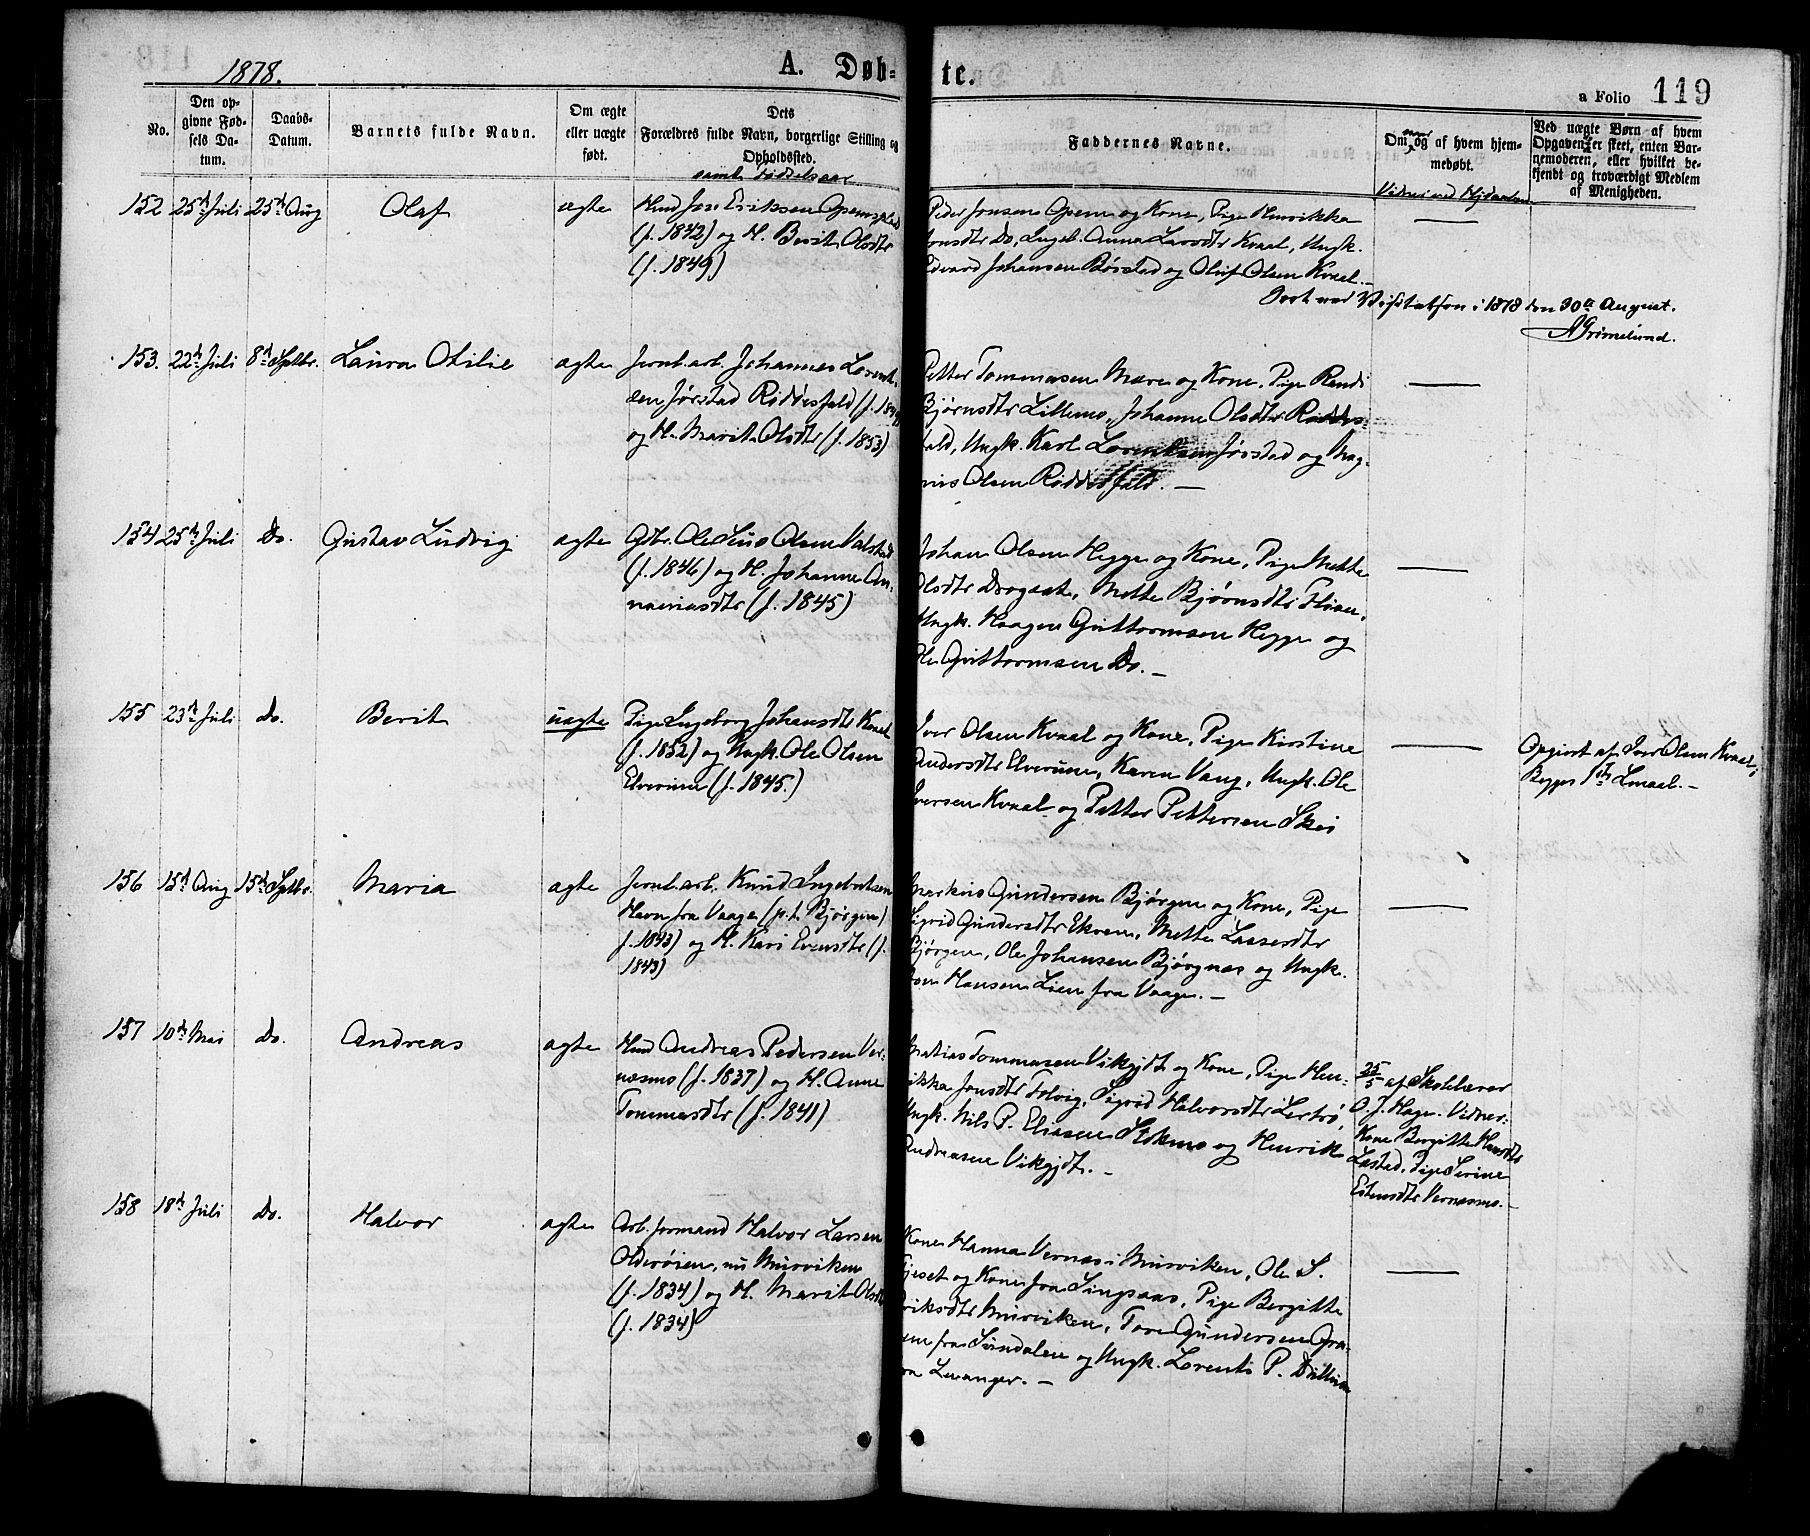 1878.
A. Døb-
te.
a Folio 119
No.
Den op-
givne Fød-
sels Da-
tum.
Daabs-
Datum.
Barnets fulde Navn.
Om ægte
eller uægte
født.
Dets
Forældres fulde Navn, borgerlige Stilling og
Opholdssted.
samt Fødselsaar
Faddernes Navne.
Om naar og af hvem hjem-
medøbt.
Vidner ved Hjdaaben
Ved uægte Børn af hvem
Opgaven er skeet, enten Bar-
nemoderen, eller hvilket be-
kjendt og troværdigt Medlem
af Menigheden.
152 25de Juli 25de Aug Olaf ægte
Hmd Jon Eriksen Opemsplads
(f. 1842) og H. Berit Olsdtr
(f. 1849)
Peder Jonsen Opem og Kone, Pige Henrikka
Jonsdtr Do, Ingeb. Anna Larsdtr Kvaal, Ungk.
Edvard Johansen Børstad og Oluf Olsen Kvaal.
Visitatsen i 1878 den 30te August.
AGrimelund.
153. 22de Juli 8de Septbr. Laura Otilie ægte
Jernb.arb. Johannes Lorent-
sen Jørstad Røddesfald
og H. Marit Olsdtr (f. 1853)
Petter Tommasen Mære og Kone, Pige Randi
Bjørnsdtr Lillemo, Johanne Olsdtr Røddes-
fald, Ungk. Karl Lorentsen Jørstad og Mag-
nus Olsen Røddesfald. —
154 25de Juli Do. Gustav Ludvig ægte
Gbr. Ole Olsen Valstad
(f. 1846) og H. Johanna An-
naniasdtr (f. 1845)
Johan Olsen Hegge og Kone, Pige Mette
Olsdtr Dragaat, Mette Bjørnsdtr Floan,
Ungk. Haagen Guttormsen Hegge og
Ole Guttormsen Do. —
155 23de Juli Do. Berit uægte
Pige Ingeborg Johansdtr Kvaal
(f. 1852) og Ungk. Ole Olsen
Elverum (f. 1845.)
Iver Olsen Kvaal og Kone, Pige Kirstine
Andersdtr Elverum, Karen Vang, Ungk. Ole
Iversen Kvaal og Petter Pettersen Skei
Opgivet af Iver Olsen Kvaal;
Begges 1ste Lmaal. —
156 15de Aug 15de Septbr. Maria ægte
Jernb.arb. Knud Ingebretsen
Havn fra Vaage (p.t. Bjørgen)
f. 1843) og H. Kari Evensdtr (f.
1843)
Markus Gundersen Bjørgen og Kone, Pige
Sigrid Gundersdtr Ekren, Mette Lassesdtr
Bjørgen, Ole Johansen Bjørgnæs og Ungk.
Jon Hansen Lien fra Vaage. —
157 10de Mai Do. Andreas ægte
Hmd Andreas Pedersen Ver-
næsmo (f. 1837) og H. Anne
Tommasdtr (f. 1841)
Matias Tommasen Vikgjdt. og Kone, Pige Hen-
rikka Jonsdtr Folvig, Sigrid Halvorsdtr
Ungk. Nils P. Eliasen Stokmo og Henrik
Andreasen Vikgjdt. —
25/5 af Skolelærer
O. J. Hage. Vidner:
Kone Bergitte
Pige Serine
Estensdtr Vernæsmo. —
158 18de Juli Do. Halvor ægte
Arb.formand Halvor Larsen
Olderøien, nu Muruviken
(f. 1834) og H. Marit Olsdtr
(f. 1834)
Kone Hanna Vernæs i Muruviken, Ole S.
og Kone fra Singsaas, Pige Bergitte
Eriksdtr Muruviken, Tore Gundersen
fra Sundalen og Ungk. Lorents P.
fra Levanger. —